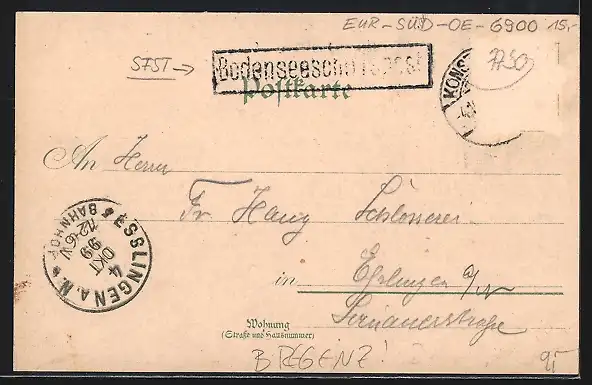 EUR-SÜD-OE-6900 15,-
SFST →
Bodenseeschiffspost
7750
Postkarte
KONS
An Herrn
Fr. Haug Schlosserei
in Eßlingen a/N
Wohnung
(Straße und Hausnummer)
ESSLINGEN A.N.
BAHNHOF
12-6V
99
OKT
4
BREGENZ!
9,-